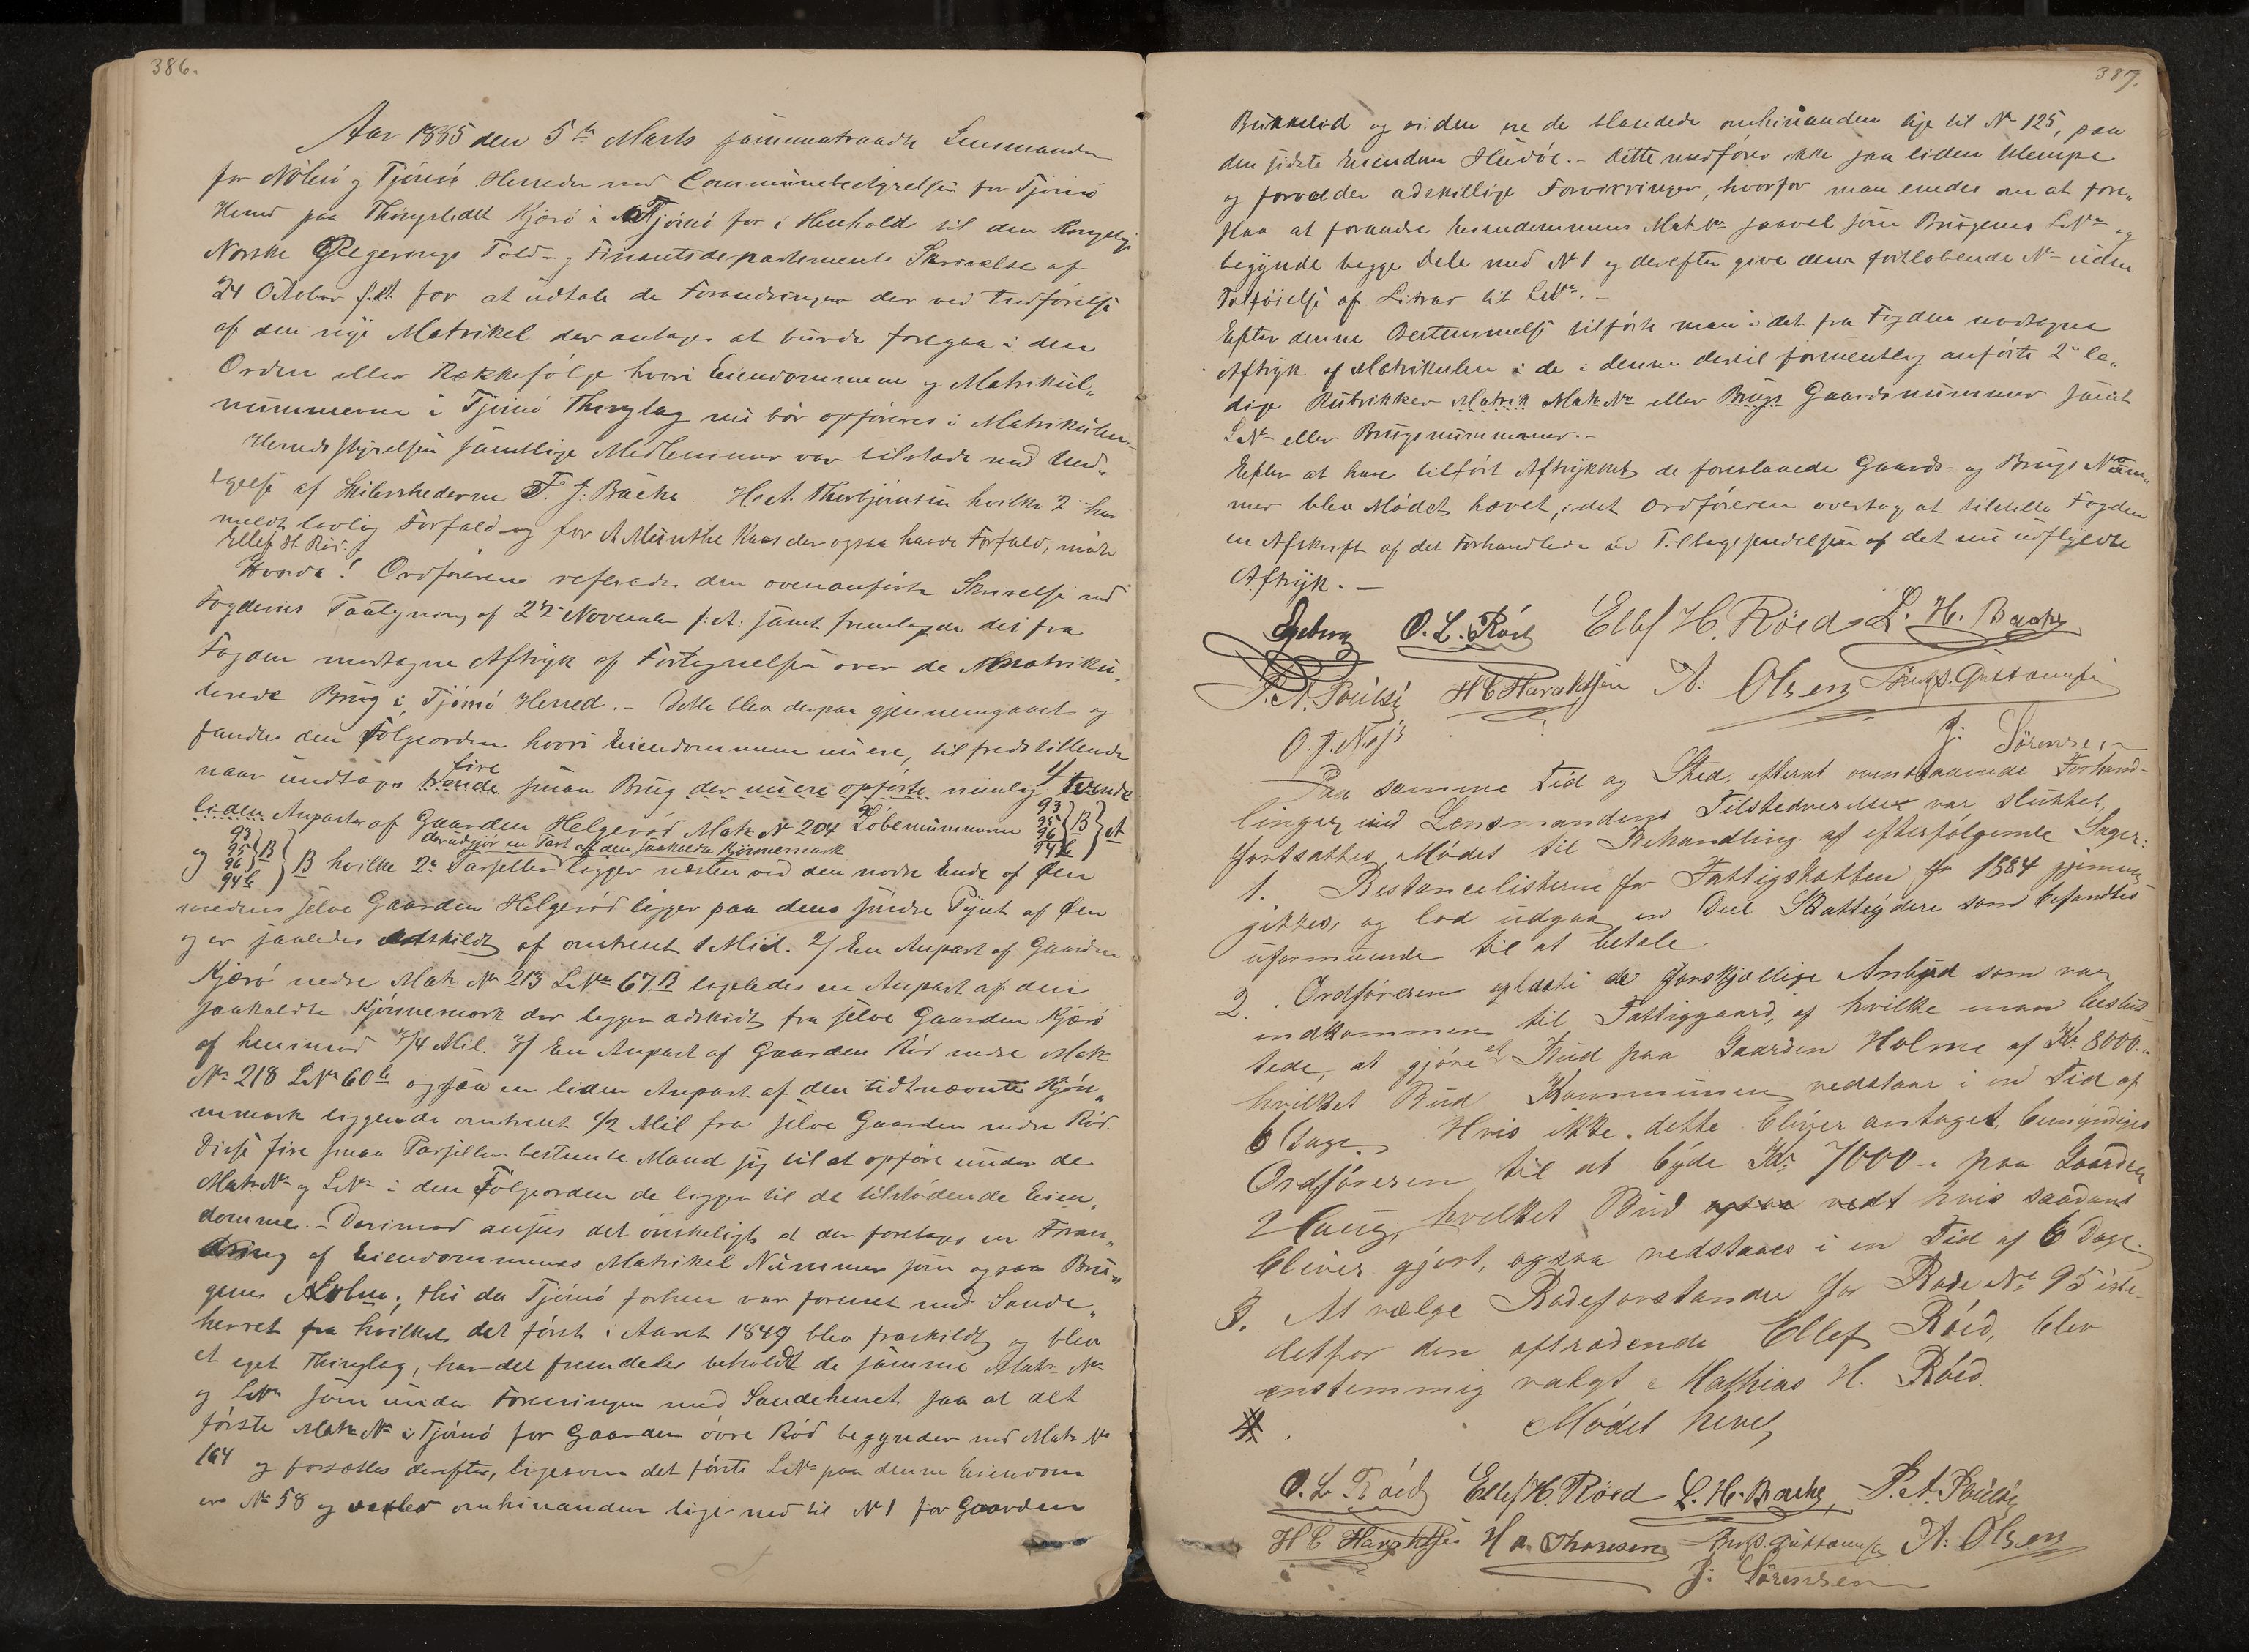 386.
Aar 1885 den 5te Marts sammentraadte Lensmanden
for Nøterø og Tjømø Herreder med Communebestyrelsen for Tjømø
Herred paa Thingstedet Kjærø i Tjømø for i Henhold til den Kongelige
Norske Regjerings Told- og Finantsdepartements Skrivelse af
24 October f.A. for at udtale de Forandringer der ved Indførelse
af den nye Matrikel der antages at burde foregaa i den
Orden eller Rækkefølge hvori Eiendommene og Matrikul„
nummerne i Tjømø Thinglag nu bør opføres i Matrikulen.
Herredsstyrelsen samtlige Medlemmer var tilstæde med Und„
tagelse af Skibsrhederne F. J. Bache H. A. Thorbjørnsen hvilke 2 har
meldt lovlig Forfald og for A Münthe Kaas der ogsaa havde Forfald, mødte
Ellef H. Röd.
Ordføreren refererede den ovenanførte Skrivelse med
Fogdens Paategning af 22 November f.A. samt fremlagde det fra
Fogden modtagne Aftryk af Fortegnelsen over de Matriku„
lerede Brug i Tjømø Herred. – Dette blev derpaa gjennemgaaet og
fandtes den Følgeorden hvori Eiendommene nu ere, tilfredstillende
fire
naar undtages tvende smaa Brug der nu ere opførte nemlig 1/ tvende
liden Anparter af Gaarden Helgerød Matr No 204 Løbenummerne 93 95 96 94b B A
og 93 95 96 94b B B hvilke 2de Parseller ligger næsten ved den nordre Ende af Øen
der udgjør en Part af den saakaldte Kjønnemark
medens selve Gaarden Helgerød ligger paa dens søndre Pynt af Øen
og er saaledes adskildt af omtrent 1 Mil. 2/ En Anpart af Gaarden
Kjærø nedre Matr No 213 LNo 67B ligeledes en Anpart af den
saakaldte Kjønnemark der ligger adskildt fra selve Gaarden Kjærø
af henimod 3/4 Mil. 3/ En Anpart af Gaarden Röd nedre Matr
No 218 LNo 60b ogsaa en liden Anpart af den tidtnævnte Kjøn„
nemark liggende omtrent 1/2 Mil fra selve Gaarden nedre Röd.
Disse fire smaa Parseller bestemte Mand sig til at opføre under de
Matr No og LNo i den Følgeorden de ligger til de tilstødende Eien„
domme. – Derimod ansees det ønskeligt at der foretages en Foran„
dring af Eiendommenes Matrikel Nummer som ogsaa Bru„
genes Löbno; thi da Tjømø forhen var forenet med Sande„
herret fra hvilket det först i Aaret 1849 blev fraskildt og blev
et eget Thinglag, har det fremdeles beholdt de samme Matr No
og LNo som under Foreningen med Sandeherret saa at det
første Matr No i Tjømø for Gaarden øvre Röd begynder med Matr No
164 og forsættes derefter, ligesom det første LNo paa denne Eiendom
er No 58 og vexler omhinanden lige ned til No 1 for Gaarden
387.
Bukkelid og siden ere de blandede omhinanden lige til No 125, paa
den sidste Eiendom Hudøe. – Dette medfører ikke saa liden Ulempe
og forvolder adskillige Forvirringer, hvorfor man enedes om at fore„
slaa at forandre Eiendommens Matr No saavel som Brugenes LNo og
begynde begge Dele med No 1 og derefter give dem fortløbende No uden
Tilføielse af Litrar til LNo. –
Efter denne Bestemmelse tilførte man i det fra Fogden modtagne
Aftryk af Matrikulen i de i denne dertil formentlig anførte 2de le„
dige Rubrikker Matrik Matr No eller Brugs Gaardsnummer samt
LNo eller Brugsnummer. –
Efter at have tilført Aftrykket de foreslaaede Gaards- og Brugs Num„
mer blev Mødet hævet, idet Ordføreren overtog at tilstille Fogden
en Afskrift af det Forhandlede ved Tilbagesendelsen af det nu udfyldte
Aftryk. –
Egeberg O. L. Röed Ellef H. Röed L. H. Bache
P. A. Poulsen H C Haraldsen A. Olsen
J: Sørensen
Paa samme Tid og Sted, efterat ovenstaaende Forhand-
linger ved Lensmandens Tilstedeværelse var sluttet,
fortsattes Mødet til Behandling af efterfølgende Sager:
1. Restancelisterne for Fattigskatten for 1884 gjennem
gikkes, og lod udgaa en Deel Skatteydere som befandtes
uformuende til at betale.
2. Ordføreren oplæste de forskjellige Anbud som var
indkommen til Fattiggaard, af hvilke man beslut-
tede, at gjøre et Bud paa Gaarden Holme af Kr. 8000.-
hvilket Bud Kommunen vedstaar i en Tid af
6 Dage. Hvis ikke dette bliver antaget, bemyndiges
Ordføreren til at byde Kr. 7000.- paa Gaarden
Haug, hvilket Bud ogsaa vedt hvis saadant
bliver gjort, ogsaa vedstaaes i en Tid af 6 Dage.
3. At vælge Rodeforstander for Rode No 95 iste-
detfor den aftrædende Ellef Röed, blev
enstemmig valgt Mathias H. Röed.
Mødet hevet
O. L. Röed Ellef H. Röed L. H. Bache, P. A. Poulsen
H C Haraldsen H A. Thorsen A. Olsen
J: Sørensen